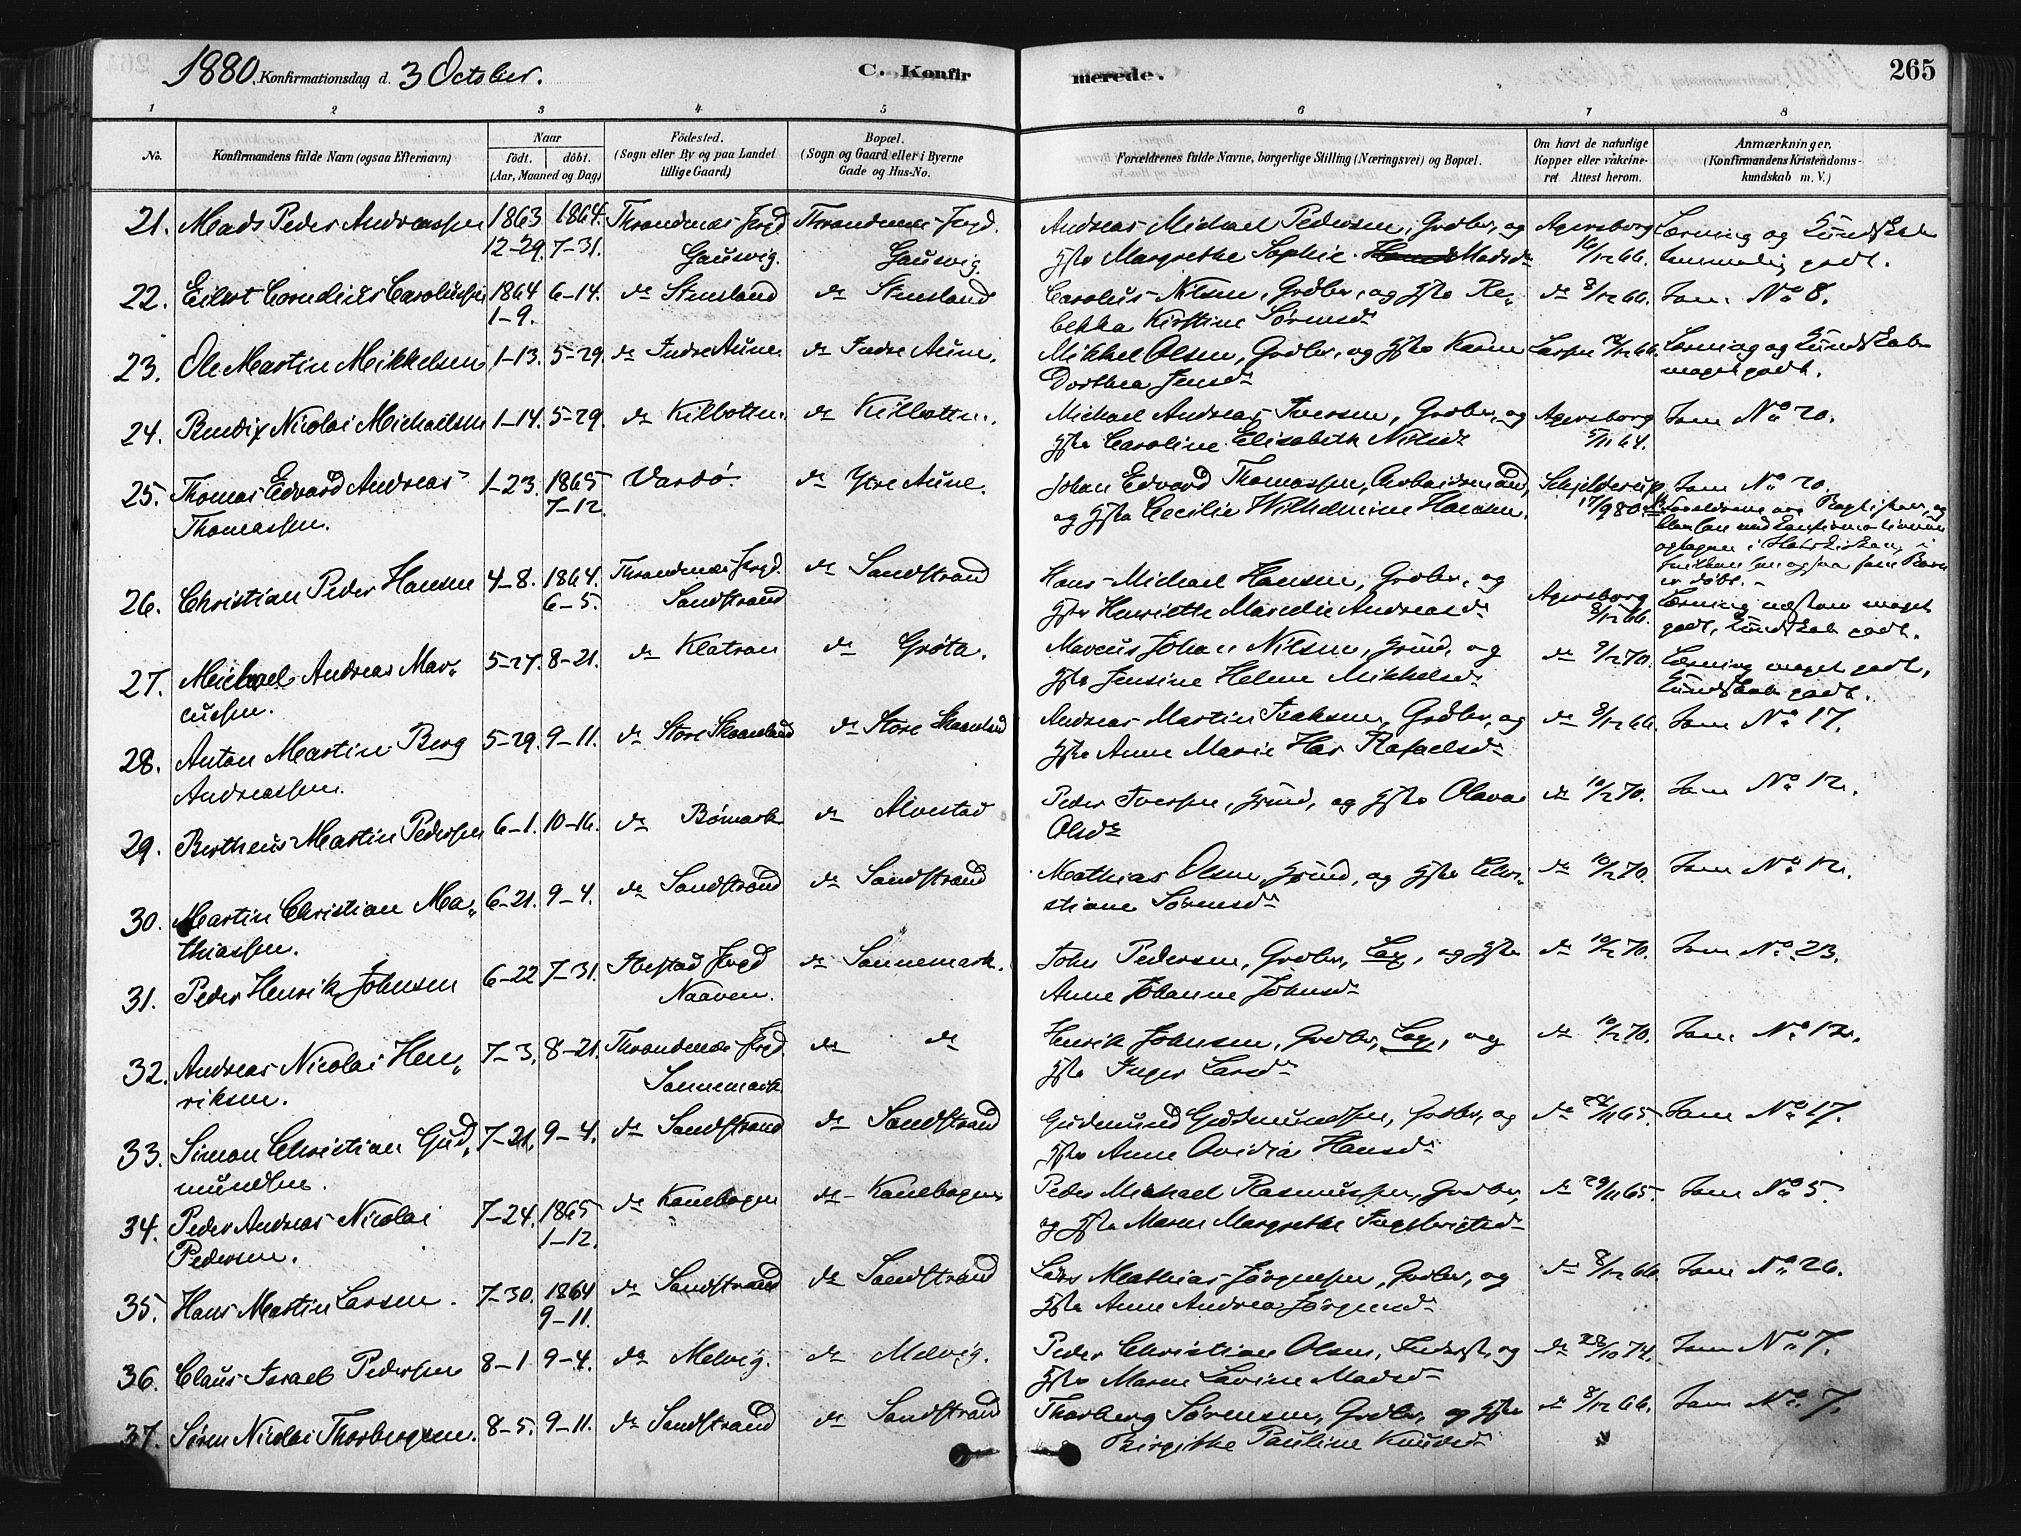 1880. Konfirmationsdag d. 3 October.
C. Konfirmerede.
265
1 2 3 4 5 6 7 8
No. Konfirmandens fulde Navn (ogsaa Efternavn) Naar født. døbt. (Aar, Maaned og Dag) Fødested. (Sogn eller By og paa Landet tillige Gaard) Bopæl. (Sogn og Gaard eller i Byerne Gade og Hus-No. Forældrenes fulde Navne, borgerlige Stilling (Næringsvei) og Bopæl. Om havt de naturlige Kopper eller vakcineret Attest herom. Anmærkninger. (Konfirmandens Kristendomskundskab m. V.)
21. Mads Peder Andreassen 1863 12-29. 1864. 7-31. Throndenæs Prgd. Gausvig. Throndenæs Prgd. Gausvig. Andreas Michael Pedersen, Grdbr, og
Hstr Margrethe Sophie Madsdr Agersborg 16/12 66. Læsning og Kundskab
godt.
22. Eilert Cornelius Carolussen 1864 1-9. 6-14. do Stensland do Stensland Carolus Nilsen, Grdbr, og Hstr Re„
bekka Kirstine Sørensdr do 8/12 66. Som No 8.
23. Ole Martin Mikkelsen 1-13. 5-29. do Indre Aune do Indre Aune. Mikkel Olsen, Grdbr, og Hstr Karen
Dorthea Jensdr 12/12 66. Læsning og Kundskab
meget godt.
24. Bendix Nicolai Michaelsen 1-14. 5-29. do Kilbotten. do Kilbotten. Michael Andreas Iversen, Grdbr, og
Hstr Caroline Elisabeth Nilsdr Agersborg 5/11 64. Som No 20.
25. Thomas Edvard Andreas
Thomassen. 1-23. 1865 7-12. Vardø do Ytre Aune. Johan Edvard Thomassen, Arbeidsmand,
og Hstr Cecilie Wilhelmine Hansen. Schjelderup 17/9 80. Som No 20.
Forældrene ere Baptister, og
er døbt.
26. Christian Peder Hansen 4-8. 1864. 6-5. Throndenæs Prgd. Sandstrand do Sandstrand Hans Michael Hansen, Grdbr, og
Hstr Henriette Marelie Andreasdr Agersborg 8/12 66. Læsning næsten meget
godt, Kundskab godt.
27. Michael Andreas Mar„
cussen. 5-27. 8-21. do Klatran do Grøta. Marcus Johan Nilsen, Gmd, og
Hstr Jensine Helene Mikkelsdr do 9/12 70. Læsning meget godt,
Kundskab godt.
28. Anton Martin Berg
Andreassen. 5-29. 9-11. do Store Skaanland do Store Skaanland Andreas Martin Isaksen, Grdbr, og
Hstr Anne Marie Rafaelsdr do 8/12 66. Som No 17.
29. Bertheus Martin Pedersen 6-1. 10-16. do Bømark do Alvestad Peder Iversen, Gmd, og Hstr Olava
Olsdr do 10/12 70. Som No 12.
30. Martin Christian Ma„
thiassen. 6-21. 9-4. do Sandstrand do Sandstrand Mathias Olsen, Gmd, og Hstr Chri„
stiane Sørensdr do 10/12 70. Som No 12.
31. Peder Henrik Johnsen 6-22 7-31. Ibestad Prgd Naaven. do Sannemark. John Pedersen, Grdbr, Lap, og Hstr
Anne Johanne Johnsdr do 10/12 70. Som No 23.
32. Andreas Nicolai Hen„
riksen. 7-3. 8-21. Throndenæs Prgd. Sannemark do do Henrik Johnsen, Grdbr, Lap, og
Hstr Inger Larsdr do 10/12 70. Som No 12.
33. Simon Christian Gud„
mundsen. 7-21. 9-4. do Sandstrand do Sandstrand Gudmund Gudmundsen, Grdbr, og
Hstr Anne Ovidia Hansdr do 28/11 65. Som No 17.
34. Peder Andreas Nicolai
Pedersen. 7-24. 1865 1-12. do Kanebogen do Kanebogen Peder Michael Rasmussen, Grdbr,
og Hstr Maren Margrethe Ingebrigtsdr do 29/11 65. Som No 5.
35. Hans Martin Larsen. 7-30. 1864 9-11. do Sandstrand do Sandstrand Lars Mathias Jørgensen, Grdbr, og
Hstr Anne Andrea Jørgensdr do 8/12 66. Som No 26.
36. Claus Israel Pedersen 8-1 9-4. do Melvig. do Melvig. Peder Christian Olsen, Inderst, og
Hstr Maren Lavine Madsdr do 28/10 72. Som No 7.
37. Søren Nicolai Thorbergsen. 8-5. 9-11. do Sandstrand do Sandstrand Thorberg Sørensen, Grdbr, og Hstr
Birgithe Pauline Knudsdr do 8/12 66. Som No. 7.